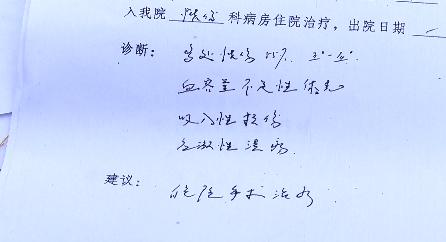 入我院 烧伤 科病房住院治疗，出院日期
诊断： 多处烧伤 % Ⅱ°-Ⅲ°
血容量不足性休克
吸入性损伤
应激性溃疡
建议： 住院手术治疗